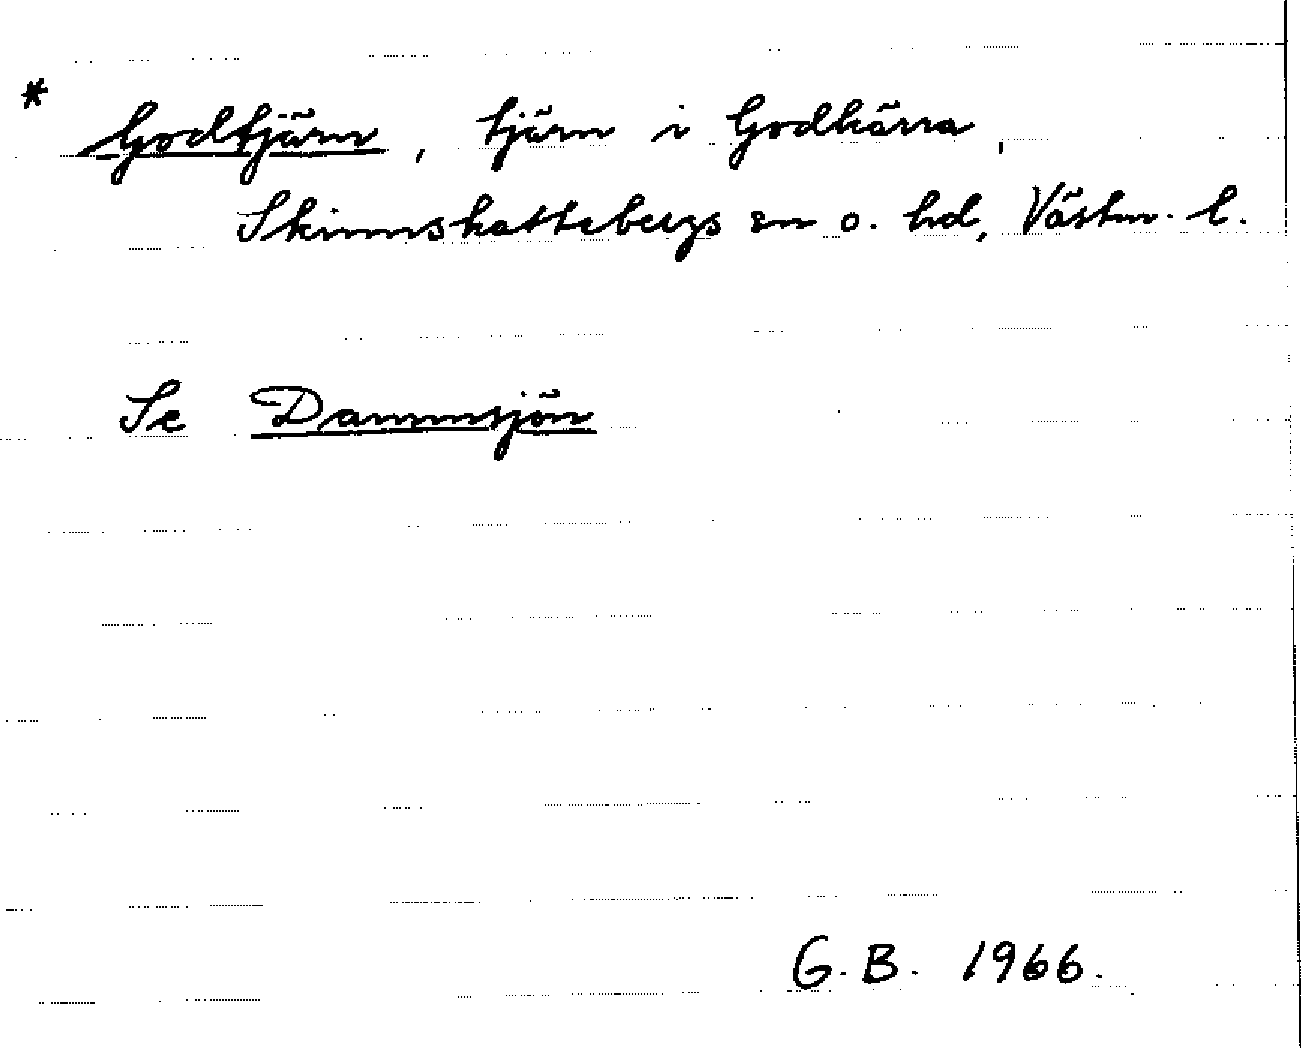 * Godtjärn, tjärn i Godkärra,
Skinnskattebergs sn o. hd, Västm. l.
Se Dammsjön
G. B. 1966.